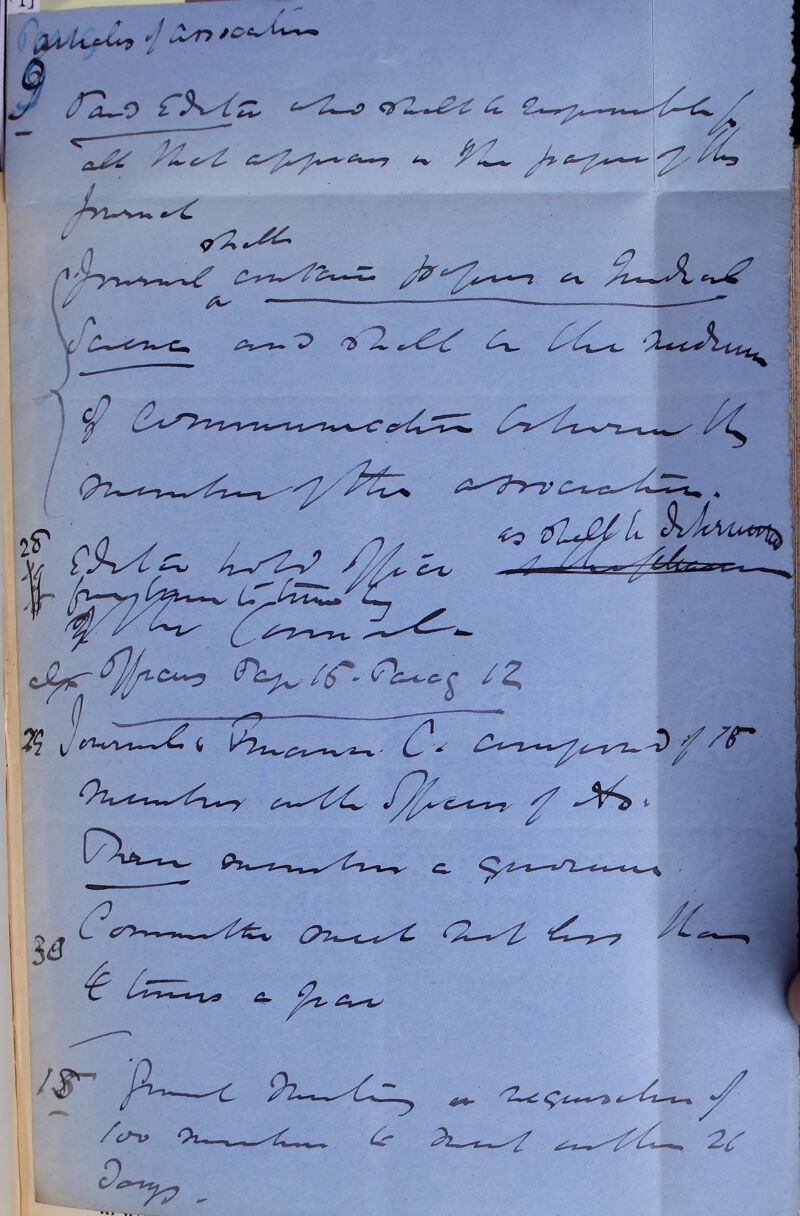 Articles of Association
9 Paid Editor who shall be responsible for
all that appears in the pages of the
Journal
shall
Journal contain papers on Medical
Science and shall be the medium
of communication between the
members of the association.
28 Editor hold office as shall be determined
from time to time by
the Council.
Officers Page 15. Parag 12
29 Journal & Finance C. composed of 15
members with officers of
Three members a quorum
30 Committee meet not less than
times a year
18 General Meeting on requisition of
100 members to meet within 21
Days.